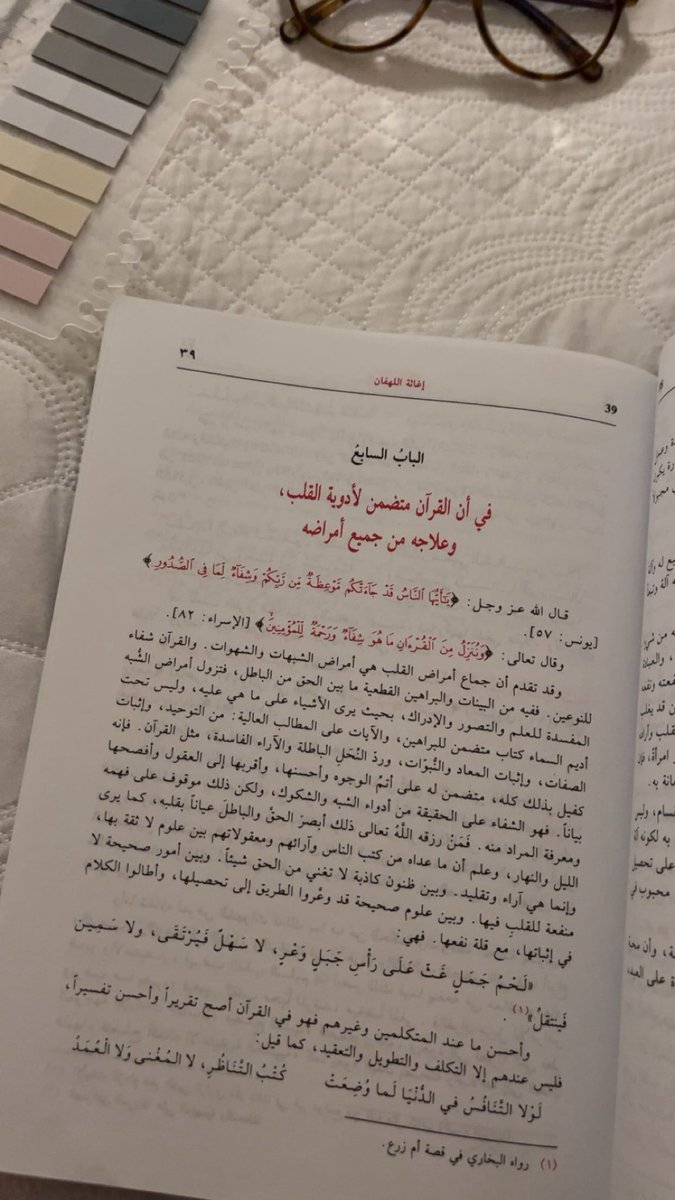 ٣٩ إغاثة اللهفان 39
البابُ السابعُ
في أن القرآن متضمن لأدوية القلب،
وعلاجه من جميع أمراضه
قال الله عز وجل: ﴿يَـٰٓأَيُّهَا ٱلنَّاسُ قَدْ جَآءَتْكُم مَّوْعِظَةٌ مِّن رَّبِّكُمْ وَشِفَآءٌ لِّمَا فِى ٱلصُّدُورِ﴾
[يونس: ٥٧].
وقال تعالى: ﴿وَنُنَزِّلُ مِنَ ٱلْقُرْءَانِ مَا هُوَ شِفَآءٌ وَرَحْمَةٌ لِّلْمُؤْمِنِينَ﴾ [الإسراء: ٨٢].
وقد تقدم أن جماع أمراض القلب هي أمراض الشبهات والشهوات. والقرآن شفاء
للنوعين. ففيه من البينات والبراهين القطعية ما بين الحق من الباطل، فتزول أمراض الشُّبه
المفسدة للعلم والتصور والإدراك، بحيث يرى الأشياء على ما هي عليه، وليس تحت
أديم السماء كتاب متضمن للبراهين، والآيات على المطالب العالية: من التوحيد، وإثبات
الصفات، وإثبات المعاد والنُّبوّات، وردّ النِّحَلِ الباطلة والآراء الفاسدة، مثل القرآن. فإنه
كفيل بذلك كله، متضمن له على أتمِّ الوجوه وأحسنها، وأقربها إلى العقول وأفصحها
بياناً. فهو الشفاء على الحقيقة من أدواء الشبه والشكوك، ولكن ذلك موقوف على فهمه
ومعرفة المراد منه. فَمَنْ رزقه اللَّهُ تعالى ذلك أبصرَ الحقَّ والباطلَ عياناً بقلبه، كما يرى
الليل والنهار، وعلم أن ما عداه من كتب الناس وآرائهم ومعقولاتهم بين علوم لا ثقة بها،
وإنما هي آراء وتقليد. وبين ظنون كاذبة لا تغني من الحق شيئاً. وبين أمور صحيحة لا
منفعة للقلب فيها. وبين علوم صحيحة قد وعَّروا الطريق إلى تحصيلها، وأطالوا الكلام
في إثباتها، مع قلة نفعها. فهي:
«لَحْمُ جَمَلٍ غَثٍّ عَلَى رَأْسِ جَبَلٍ وَعْرٍ، لا سَهْلٌ فَيُرْتَقَى، ولا سَمِين
فَينتقلُ»(١).
وأحسن ما عند المتكلمين وغيرهم فهو في القرآن أصح تقريراً وأحسن تفسيراً،
فليس عندهم إلا التكلف والتطويل والتعقيد، كما قيل:
لَوْلا التَّنَافُسُ في الدُّنْيَا لَما وُضِعَتْ كُتْبُ التَّنَاظُرِ، لا المُغْنى وَلا الْعُمَدُ
(١) رواه البخاري في قصة أم زرع.